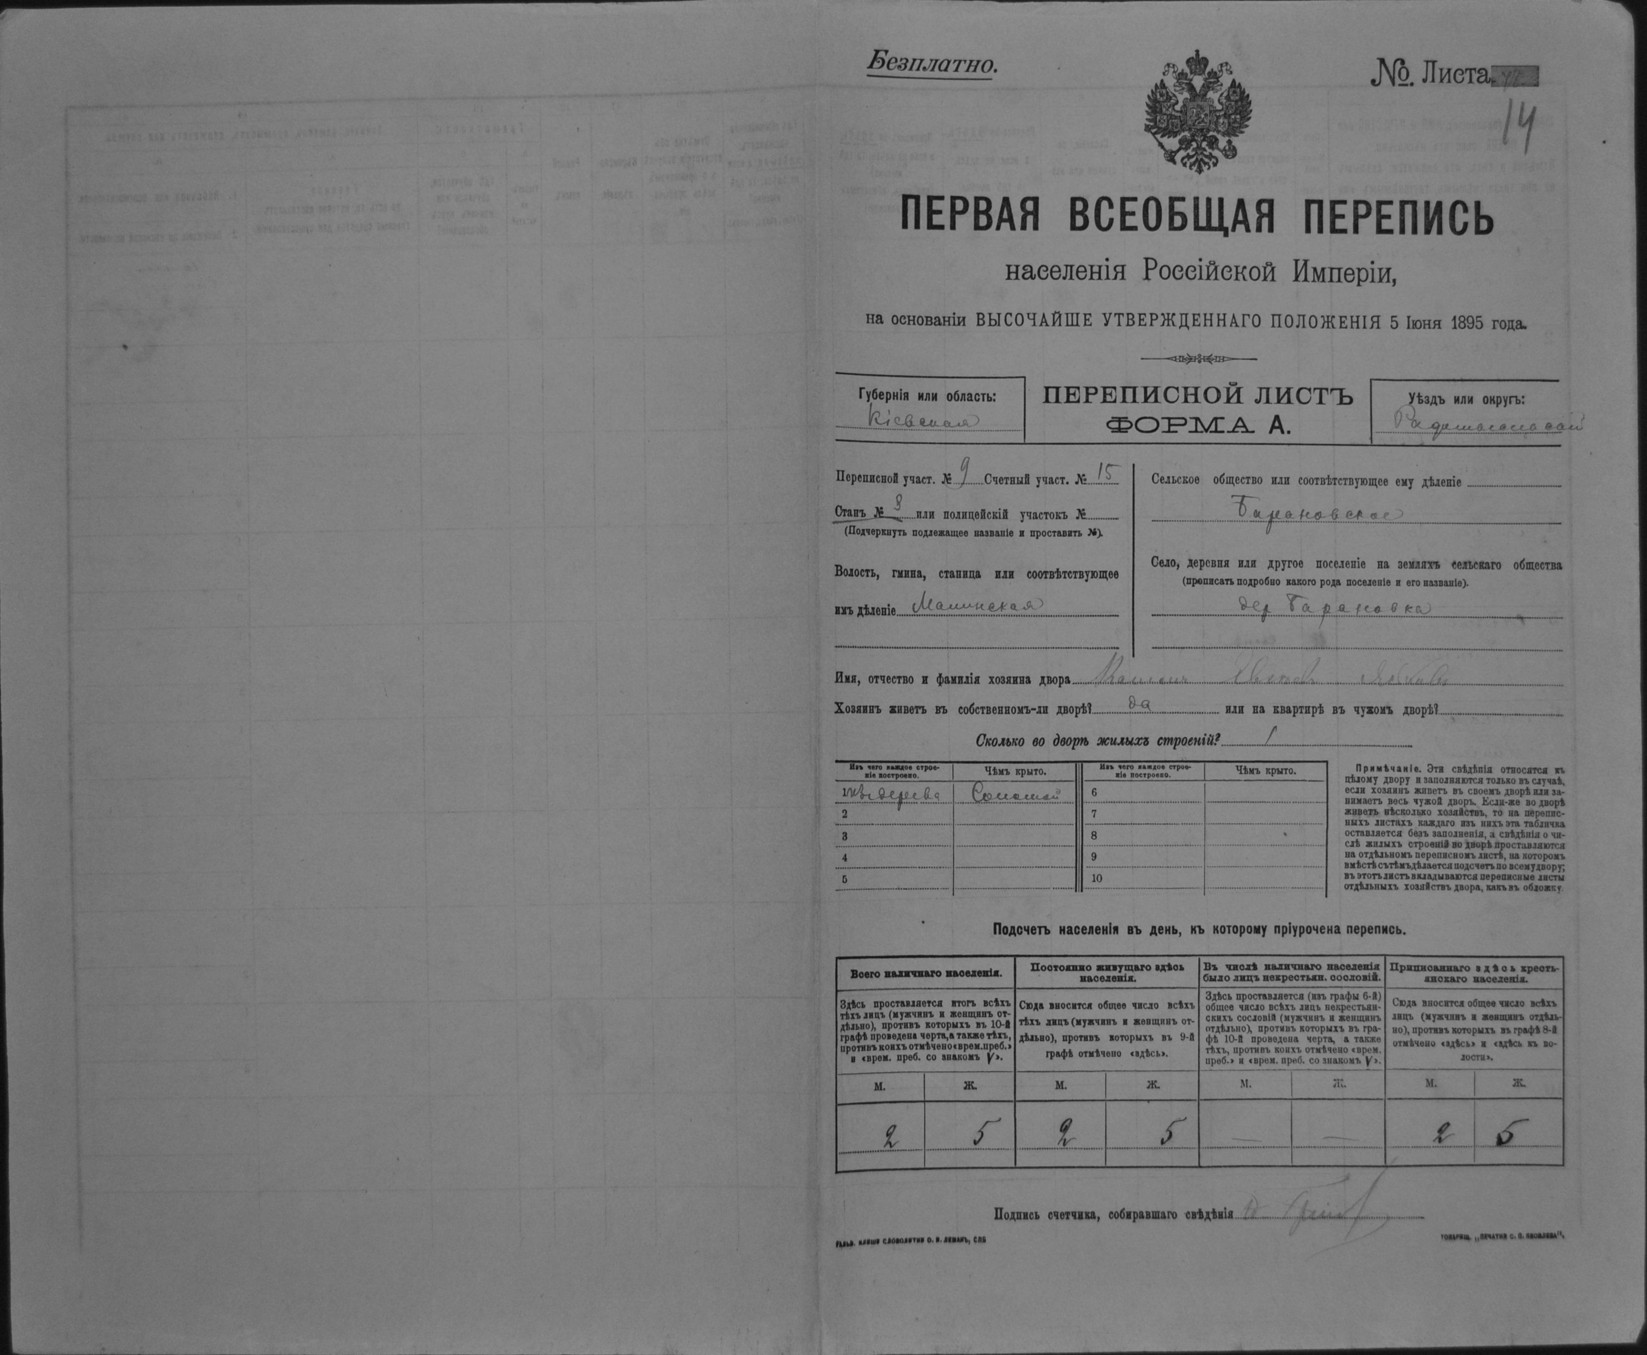 Безплатно.
№. Листа
14
ПЕРВАЯ ВСЕОБЩАЯ ПЕРЕПИСЬ
населенія Россійской Имперіи,
на основаніи ВЫСОЧАЙШЕ УТВЕРЖДЕННАГО ПОЛОЖЕНІЯ 5 Іюня 1895 года.
Губернія или область:
Кіевская
ПЕРЕПИСНОЙ ЛИСТЪ
ФОРМА А.
Уѣздъ или округъ:
Переписной участ. № 9 Счетный участ. № 15
Станъ № 3 или полицейскій участокъ №
(Подчеркнуть подлежащее названіе и проставить №).
Волость, гмина, станица или соотвѣтствующее
имъ дѣленіе Малинская
Сельское общество или соотвѣтствующее ему дѣленіе
Барановское
Село, деревня или другое поселеніе на земляхъ сельскаго общества
(прописать подробно какого рода поселеніе и его названіе).
дер Барановка
Имя, отчество и фамилія хозяина двора
Хозяинъ живетъ въ собственномъ-ли дворѣ? да или на квартирѣ въ чужомъ дворѣ?
Сколько во дворѣ жилыхъ строеній? 1
Изъ чего каждое строе-
ніе построено.
Чѣмъ крыто.
Изъ чего каждое строе-
ніе построено.
Чѣмъ крыто.
1 изъ дерева Соломой 6
2 7
3 8
4 9
5 10
Примѣчаніе. Эти свѣдѣнія относятся къ
цѣлому двору и заполняются только въ случаѣ,
если хозяинъ живетъ въ своемъ дворѣ или за-
нимаетъ весь чужой дворъ. Если-же во дворѣ
живетъ нѣсколько хозяйствъ, то на перепис-
ныхъ листахъ каждаго изъ нихъ эта табличка
оставляется безъ заполненія, а свѣдѣнія о чи-
слѣ жилыхъ строеній во дворѣ проставляются
на отдѣльномъ переписномъ листѣ, на которомъ
вмѣстѣ съ тѣмъ дѣлается подсчетъ по всему двору;
въ этотъ листъ вкладываются переписные листы
отдѣльныхъ хозяйствъ двора, какъ въ обложку.
Подсчетъ населенія въ день, къ которому пріурочена перепись.
Всего наличнаго населенія.
Здѣсь проставляется итогъ всѣхъ
тѣхъ лицъ (мужчинъ и женщинъ от-
дѣльно), противъ которыхъ въ 10-й
графѣ проведена черта, а также тѣхъ,
противъ коихъ отмѣчено «врем. преб.»
и «врем. преб. со знакомъ V».
Постоянно живущаго здѣсь
населенія.
Сюда вносится общее число всѣхъ
тѣхъ лицъ (мужчинъ и женщинъ от-
дѣльно), противъ которыхъ въ 9-й
графѣ отмѣчено «здѣсь».
Въ числѣ наличнаго населенія
было лицъ некрестьян. сословій.
Здѣсь проставляется (изъ графы 6-й)
общее число всѣхъ лицъ некрестьян-
скихъ сословій (мужчинъ и женщинъ
отдѣльно), противъ которыхъ въ гра-
фѣ 10-й проведена черта, а также
тѣхъ, противъ коихъ отмѣчено «врем.
преб.» и «врем. преб. со знакомъ V».
Приписаннаго здѣсь кресть-
янскаго населенія.
Сюда вносится общее число всѣхъ
лицъ (мужчинъ и женщинъ отдѣль-
но), противъ которыхъ въ графѣ 8-й
отмѣчено «здѣсь» и «здѣсь къ во-
лости».
М. Ж. М. Ж. М. Ж. М. Ж.
2 5 2 5 — — 2 5
Подпись счетчика, собиравшаго свѣдѣнія
ГАЛЬВ. КЛИШЕ СЛОВОЛИТНИ О. И. ЛЕМАНЪ, СПБ
ТОВАРИЩ. „ПЕЧАТНЯ С. П. ЯКОВЛЕВА".